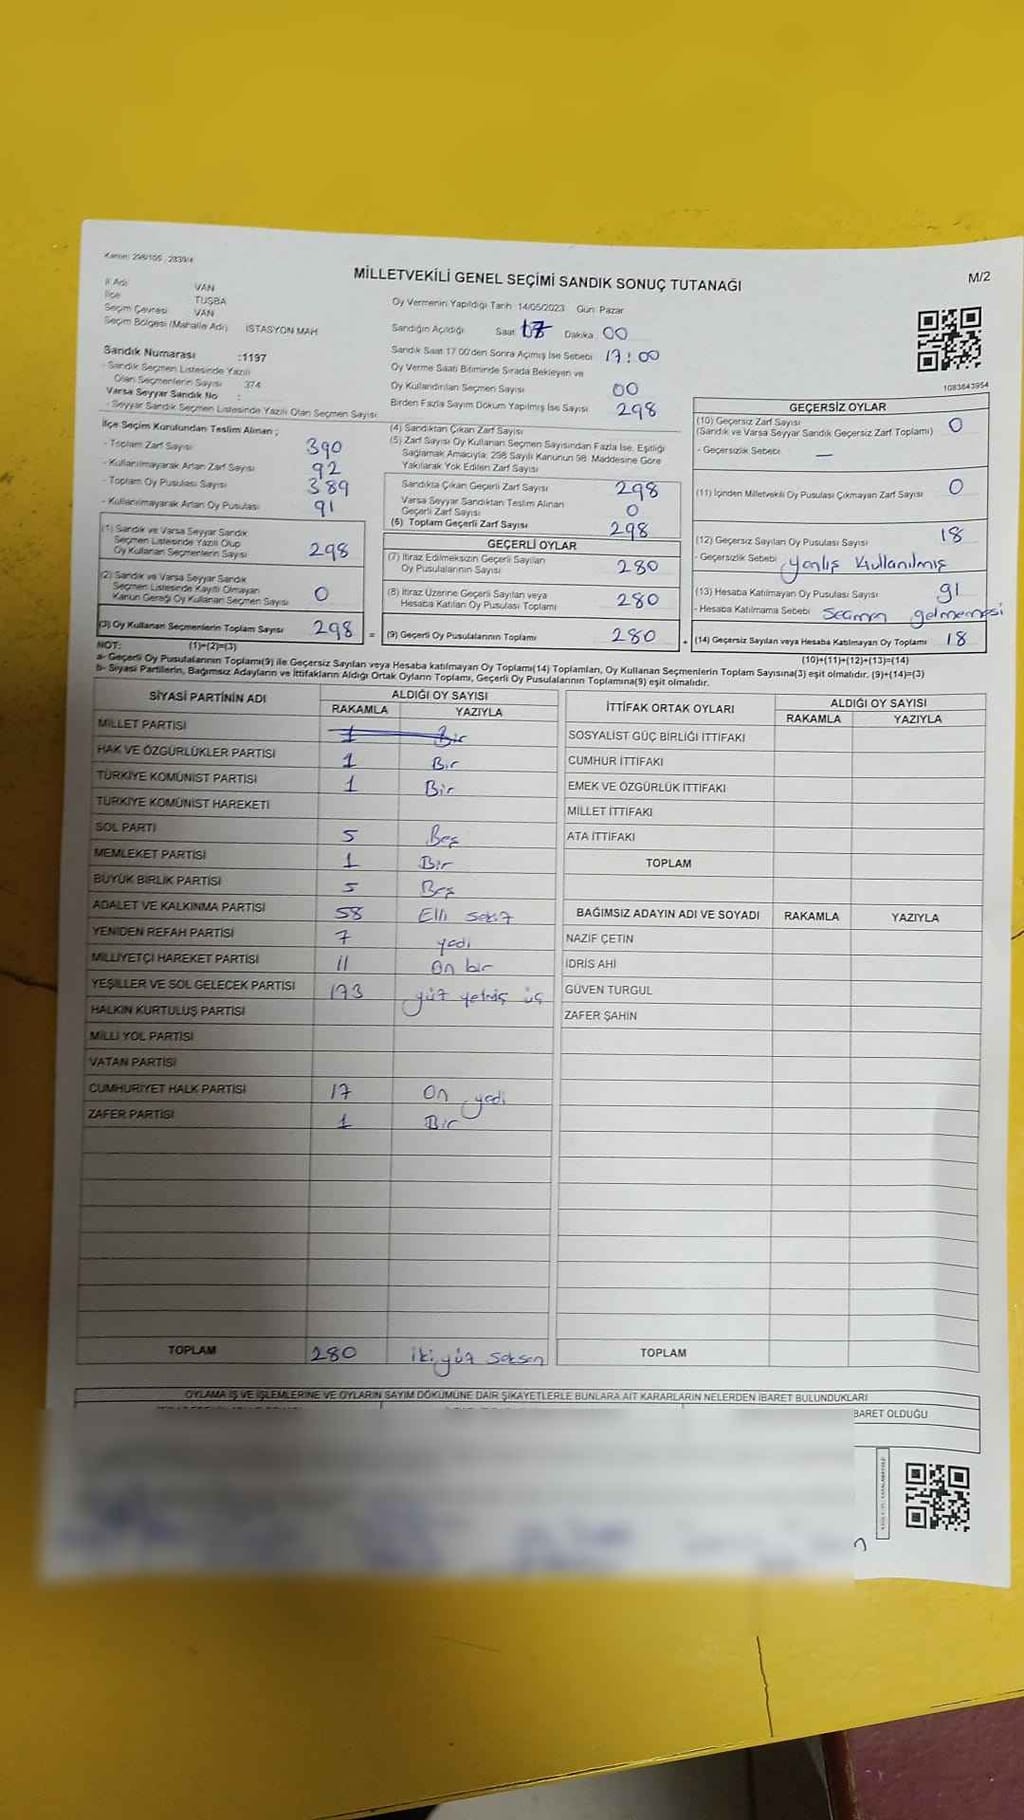 Kanun: 298/105 , 2839/4
MİLLETVEKİLİ GENEL SEÇİMİ SANDIK SONUÇ TUTANAĞI
M/2
İl Adı VAN
İlçe TUŞBA
Seçim Çevresi VAN
Seçim Bölgesi (Mahalle Adı) İSTASYON MAH
Sandık Numarası :1197
- Sandık Seçmen Listesinde Yazılı
Olan Seçmenlerin Sayısı 374
Varsa Seyyar Sandık No :
- Seyyar Sandık Seçmen Listesinde Yazılı Olan Seçmen Sayısı
Oy Vermenin Yapıldığı Tarih 14/05/2023 Gün: Pazar
Sandığın Açıldığı Saat Dakika 00
Sandık Saat 17:00'den Sonra Açılmış İse Sebebi 17:00
Oy Verme Saati Bitiminde Sırada Bekleyen ve
Oy Kullandırılan Seçmen Sayısı 00
Birden Fazla Sayım Döküm Yapılmış İse Sayısı 298
1083643954
İlçe Seçim Kurulundan Teslim Alınan ;
- Toplam Zarf Sayısı 390
- Kullanılmayarak Artan Zarf Sayısı 92
- Toplam Oy Pusulası Sayısı 389
- Kullanılmayarak Artan Oy Pusulası 91
(1) Sandık ve Varsa Seyyar Sandık
Seçmen Listesinde Yazılı Olup
Oy Kullanan Seçmenlerin Sayısı 298
(2) Sandık ve Varsa Seyyar Sandık
Seçmen Listesinde Kayıtlı Olmayan
Kanun Gereği Oy Kullanan Seçmen Sayısı 0
(3) Oy Kullanan Seçmenlerin Toplam Sayısı 298 =
(4) Sandıktan Çıkan Zarf Sayısı
(5) Zarf Sayısı Oy Kullanan Seçmen Sayısından Fazla İse, Eşitliği
Sağlamak Amacıyla; 298 Sayılı Kanunun 98. Maddesine Göre
Yakılarak Yok Edilen Zarf Sayısı
Sandıkta Çıkan Geçerli Zarf Sayısı 298
Varsa Seyyar Sandıktan Teslim Alınan
Geçerli Zarf Sayısı 0
(6) Toplam Geçerli Zarf Sayısı 298
GEÇERLİ OYLAR
(7) İtiraz Edilmeksizin Geçerli Sayılan
Oy Pusulalarının Sayısı 280
(8) İtiraz Üzerine Geçerli Sayılan veya
Hesaba Katılan Oy Pusulası Toplamı 280
(9) Geçerli Oy Pusulalarının Toplamı 280 +
GEÇERSİZ OYLAR
(10) Geçersiz Zarf Sayısı 0
(Sandık ve Varsa Seyyar Sandık Geçersiz Zarf Toplamı)
- Geçersizlik Sebebi: —
(11) İçinden Milletvekili Oy Pusulası Çıkmayan Zarf Sayısı 0
(12) Geçersiz Sayılan Oy Pusulası Sayısı 18
- Geçersizlik Sebebi: yanlış Kullanılmış
(13) Hesaba Katılmayan Oy Pusulası Sayısı 91
- Hesaba Katılmama Sebebi Seçmen gelmemesi
(14) Geçersiz Sayılan veya Hesaba Katılmayan Oy Toplamı 18
NOT: (1)+(2)=(3)
(10)+(11)+(12)+(13)=(14)
a- Geçerli Oy Pusulalarının Toplamı(9) ile Geçersiz Sayılan veya Hesaba katılmayan Oy Toplamı(14) Toplamları, Oy Kullanan Seçmenlerin Toplam Sayısına(3) eşit olmalıdır. (9)+(14)=(3)
b- Siyasi Partilerin, Bağımsız Adayların ve İttifakların Aldığı Ortak Oyların Toplamı, Geçerli Oy Pusulalarının Toplamına(9) eşit olmalıdır.
SİYASİ PARTİNİN ADI ALDIĞI OY SAYISI
RAKAMLA YAZIYLA
MİLLET PARTİSİ 1 Bir
HAK VE ÖZGÜRLÜKLER PARTİSİ 1 Bir
TÜRKİYE KOMÜNİST PARTİSİ 1 Bir
TÜRKİYE KOMÜNİST HAREKETİ
SOL PARTİ 5 Beş
MEMLEKET PARTİSİ 1 Bir
BÜYÜK BİRLİK PARTİSİ 5 Beş
ADALET VE KALKINMA PARTİSİ 58 Elli sekiz
YENİDEN REFAH PARTİSİ 7 yedi
MİLLİYETÇİ HAREKET PARTİSİ 11 On bir
YEŞİLLER VE SOL GELECEK PARTİSİ 173 yüz yetmiş üç
HALKIN KURTULUŞ PARTİSİ
MİLLİ YOL PARTİSİ
VATAN PARTİSİ
CUMHURİYET HALK PARTİSİ 17 On yedi
ZAFER PARTİSİ 1 Bir
TOPLAM 280 iki yüz seksen
İTTİFAK ORTAK OYLARI ALDIĞI OY SAYISI
RAKAMLA YAZIYLA
SOSYALİST GÜÇ BİRLİĞİ İTTİFAKI
CUMHUR İTTİFAKI
EMEK VE ÖZGÜRLÜK İTTİFAKI
MİLLET İTTİFAKI
ATA İTTİFAKI
TOPLAM
BAĞIMSIZ ADAYIN ADI VE SOYADI RAKAMLA YAZIYLA
NAZİF ÇETİN
İDRİS AHİ
GÜVEN TURGUL
ZAFER ŞAHİN
TOPLAM
OYLAMA İŞ VE İŞLEMLERİNE VE OYLARIN SAYIM DÖKÜMÜNE DAİR ŞİKAYETLERLE BUNLARA AİT KARARLARIN NELERDEN İBARET BULUNDUKLARI
BARET OLDUĞU